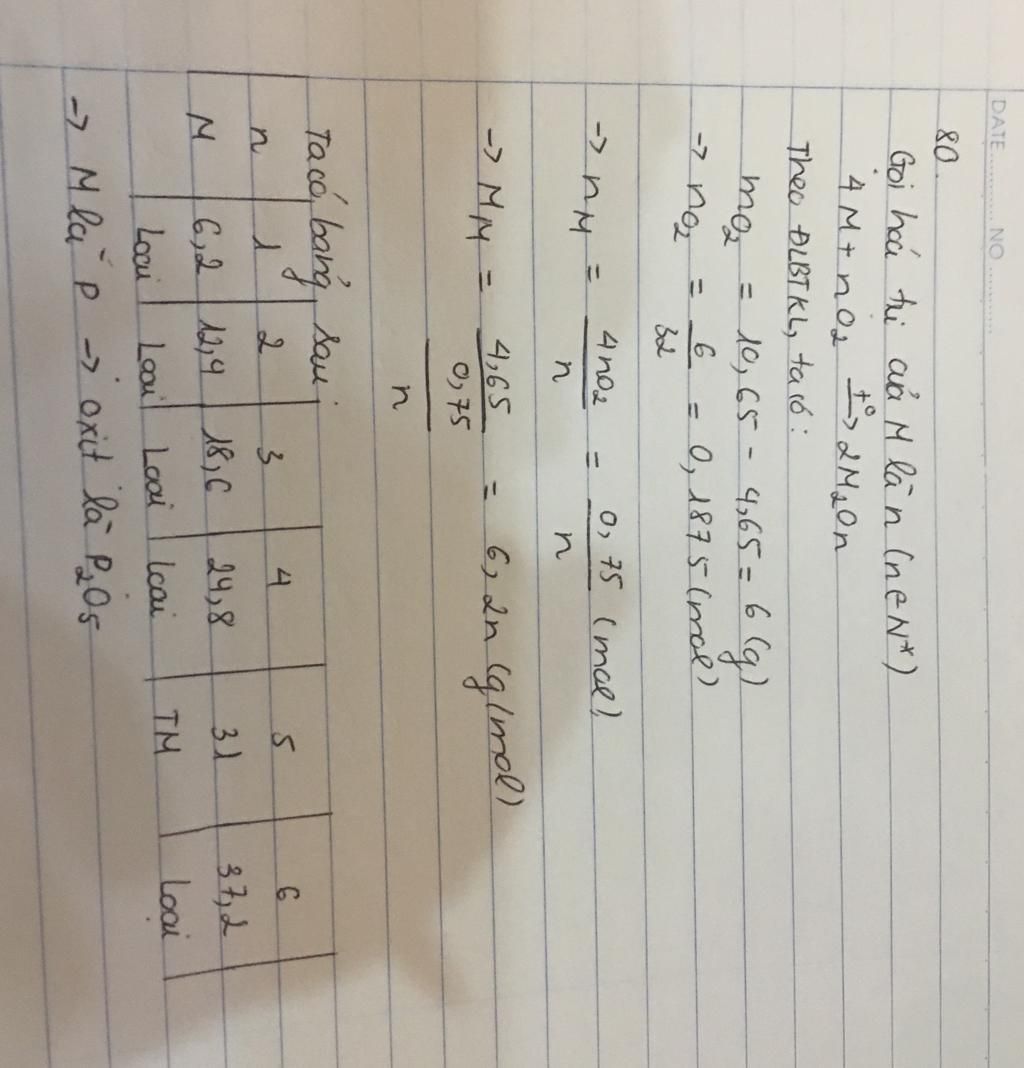 DATE .......... NO ...........
80.
Gọi hoá trị của M là n (n ∈ N*)
4M + nO₂ —t°→ 2M₂On
Theo ĐLBTKL, ta có:
mO₂ = 10,65 - 4,65 = 6 (g)
→ nO₂ = 6/32 = 0,1875 (mol)
→ nM = 4nO₂/n = 0,75/n (mol)
→ MM = 4,65/(0,75/n) = 6,2n (g/mol)
Ta có bảng sau
n 1 2 3 4 5 6
M 6,2 12,4 18,6 24,8 31 37,2
Loại Loại Loại Loại TM Loại
→ M là P → oxit là P₂O₅